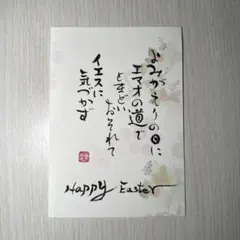 よみがえりの日に
エマオの道で
とまどい
おそれて
イエスに
気づかず
Happy Easter